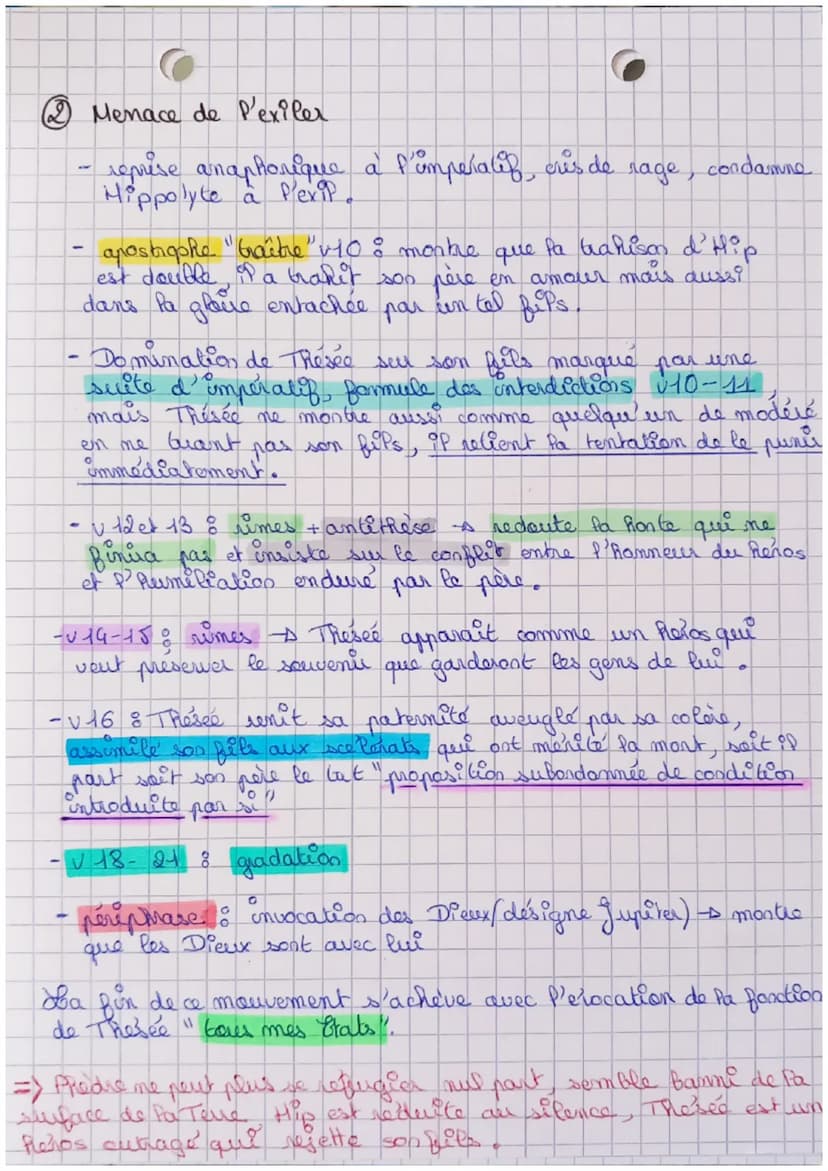 ② Menace de l'exiler
- reprise anaphorique à l'impératif, cris de rage, condamne
Hippolyte à l'exil.
- apostrophe "traître" v10 : montre que la trahison d'Hip
est double, il a trahit son père en amour mais aussi
dans la gloire entachée par un tel fils.
- Domination de Thésée sur son fils marqué par une
suite d'impératif, formule des interdictions v10-11,
mais Thésée ne montre aussi comme quelqu'un de modéré
en ne tuant pas son fils, il retient la tentation de le punir
immédiatement.
- v 12 et 13 : rimes + antithèse → redoute la honte qui ne
finira pas et insiste sur le conflit entre l'honneur du héros
et l'humiliation enduré par le père.
- v 14-15 : rimes → Thésée apparait comme un héros qui
veut préserver le souvenir que garderont les gens de lui.
- v 16 : Thésée renit sa paternité aveuglé par sa colère,
assimile son fils aux scélérats qui ont mérité la mort, soit il
part soit son père le tut "proposition subordonnée de condition
introduite par si"
- v 18-21 : gradation
- périphrase : invocation des Dieux (désigne Jupiter) → montre
que les Dieux sont avec lui
La fin de ce mouvement s'achève avec l'évocation de la fonction
de Thésée "tous mes États".
=> Phèdre ne peut plus se réfugier nul part, semble banni de la
surface de la Terre, Hip est réduite au silence, Thésée est un
héros outragé qui rejette son fils.